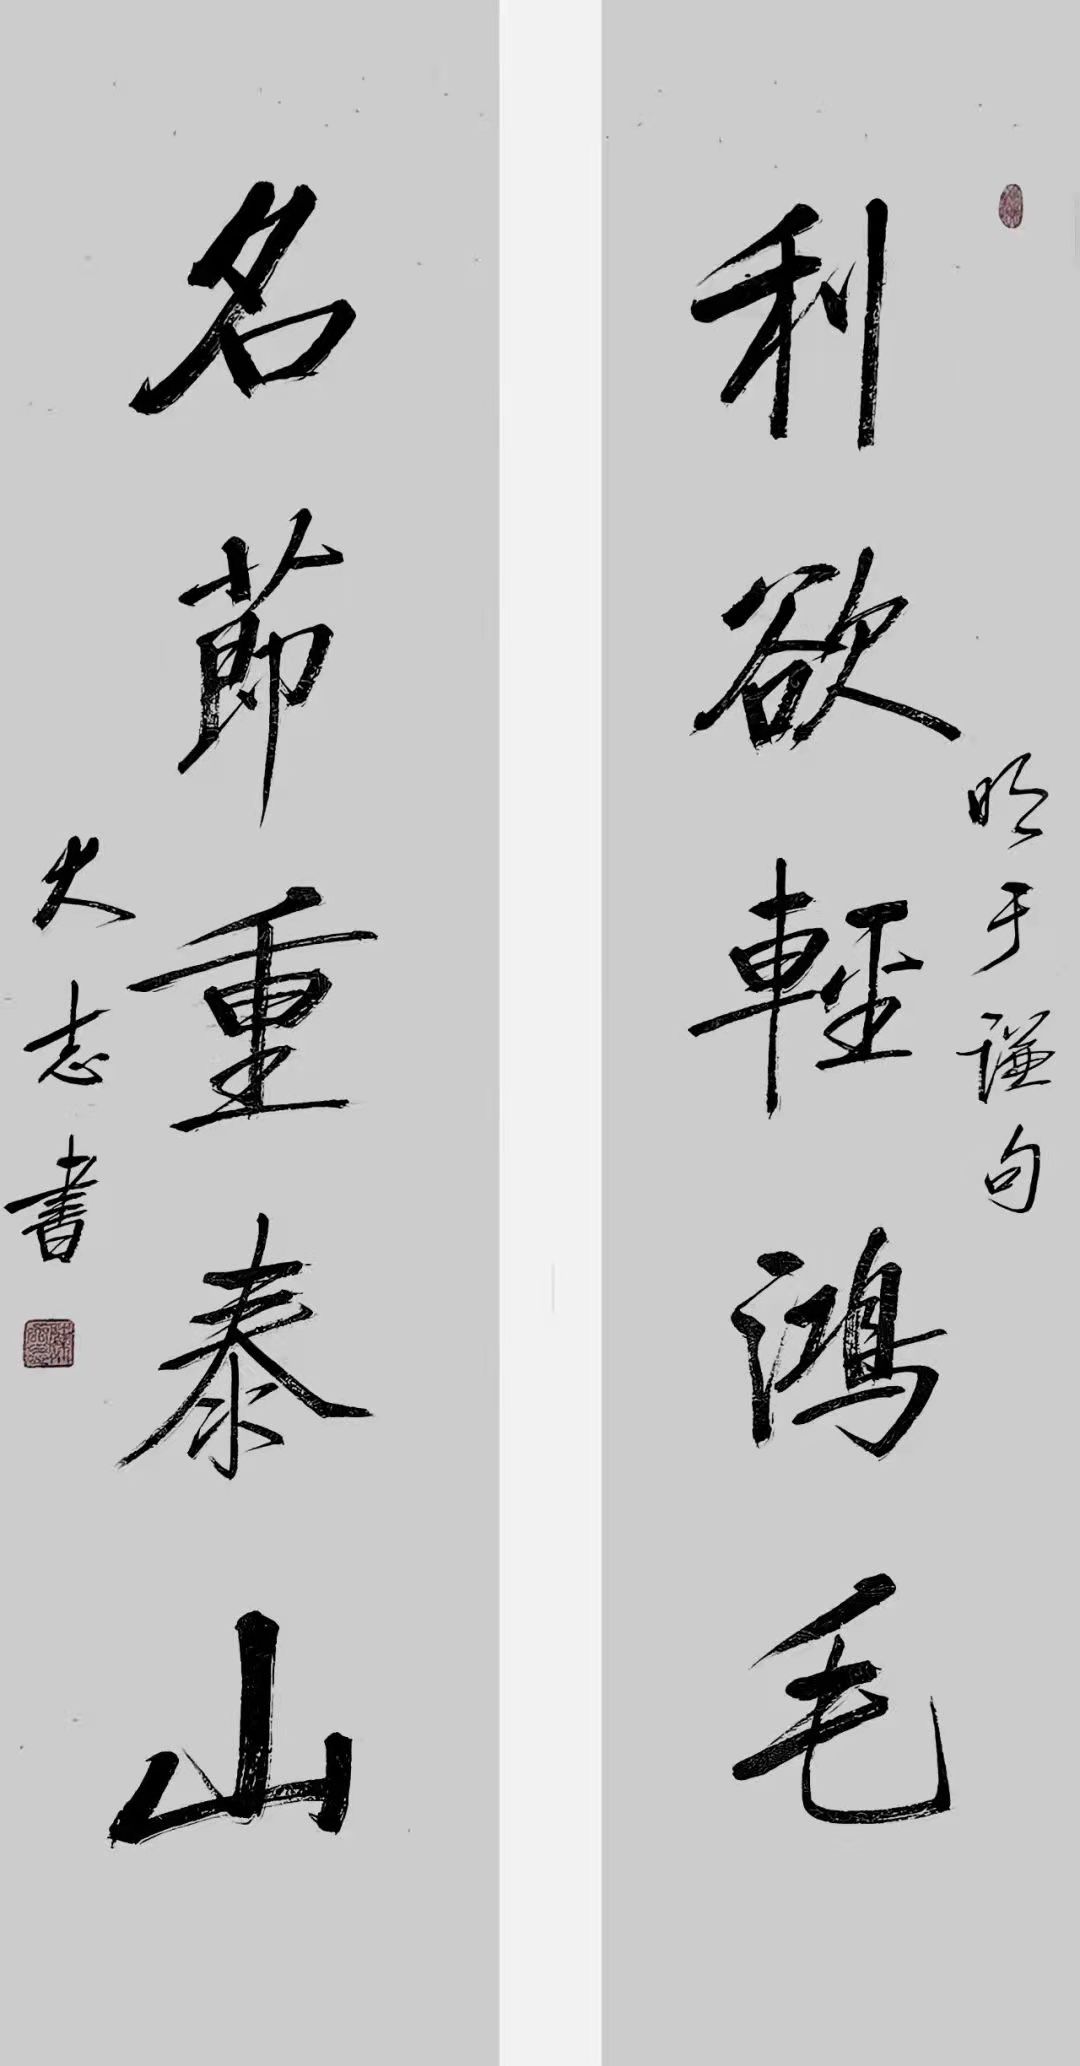 利欲輕鴻毛
明于谦句
名節重泰山
大志書